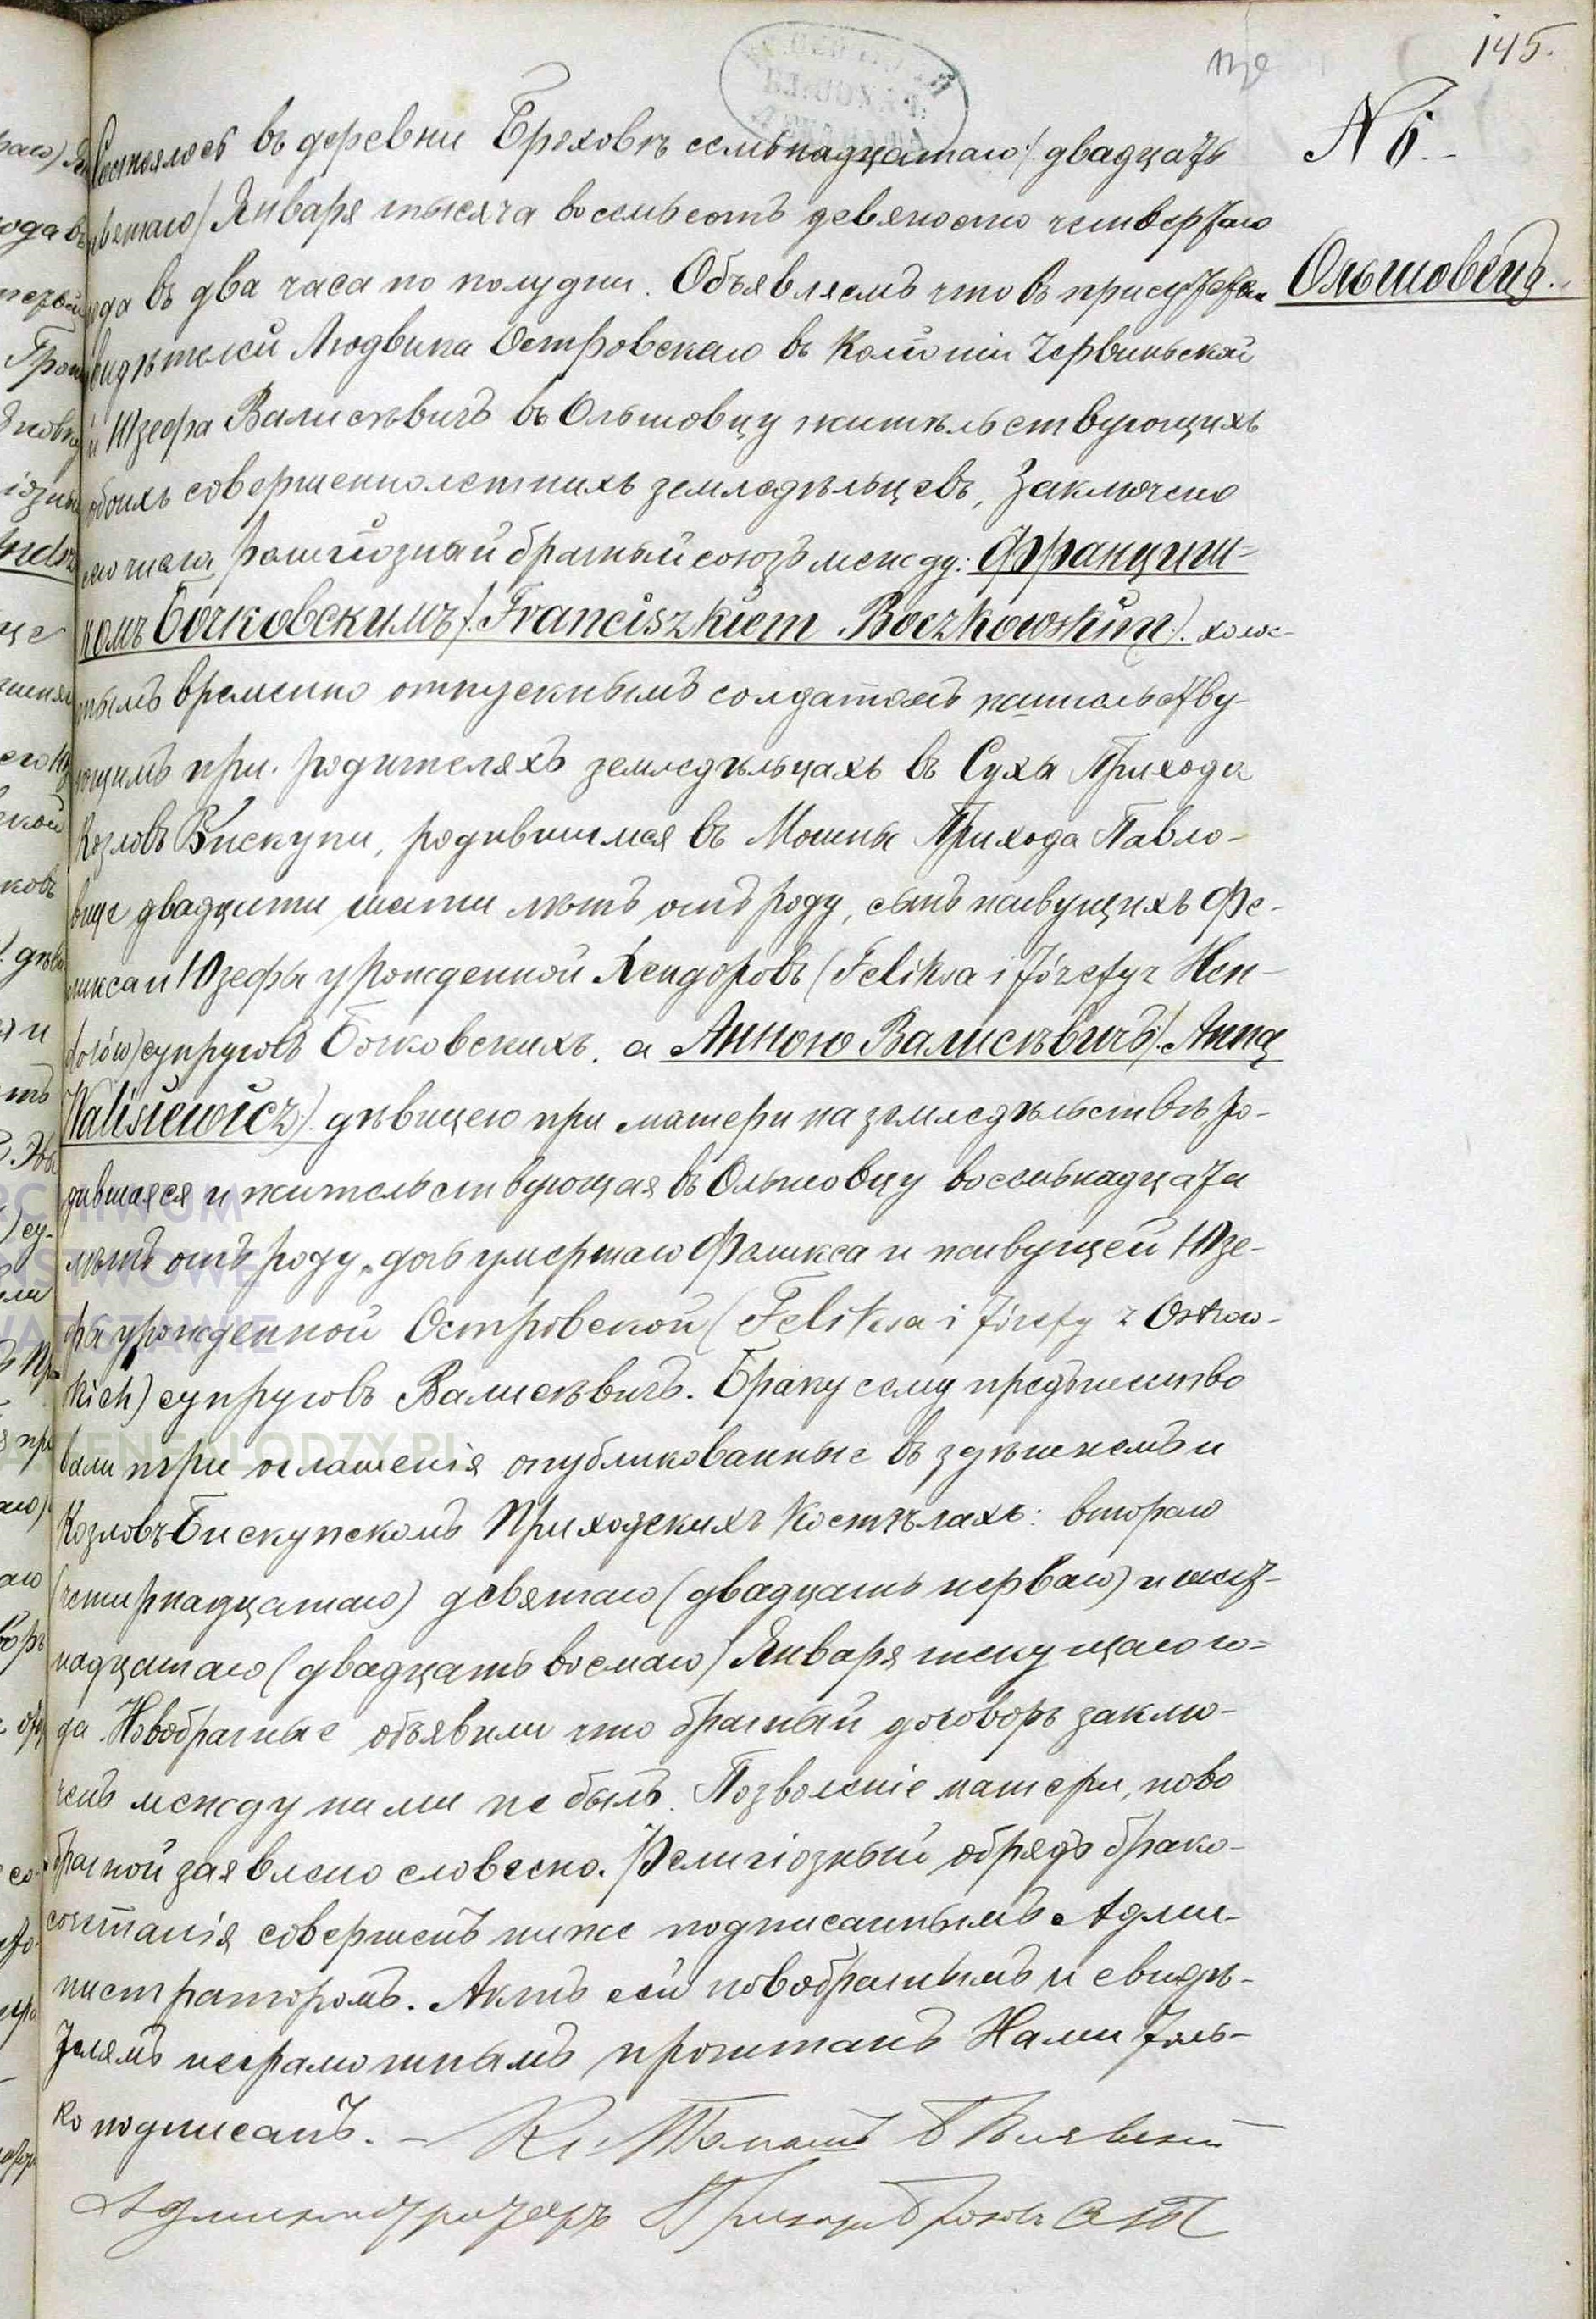 145.
N 6.
Ольшовецъ.
Состоялось въ деревни Бржховѣ семьнадцатаго /двадцать
девятаго/ Января тысяча восемьсотъ девяносто четвертаго
года въ два часа по полудни. Объявляемъ что въ присутствіи
свидѣтелей Людвика Островскаго въ Колоніи Червиньской
и Юзефа Валисѣвичъ въ Ольшовцу жительствующихъ
обоихъ совершеннолетнихъ земледѣльцевъ, Заключено
сего числа религіозный брачный союзъ между: Францыш-
комъ Бочковскимъ /:Franciszkiem Boczkowskim:/. холос-
тымъ временно отпускнымъ солдатомъ жительству-
ющимъ при родителяхъ земледѣльцахъ въ Суха Прихода
Козловъ Бискупи, родившимся въ Мошны Прихода Павло-
вице двадцати шести лѣтъ отъ роду, сынъ живущихъ Фе-
ликса и Юзефы урожденной Хендоровъ (Feliksa i Józefy z Hen-
dorów) супруговъ Бочковскихъ. а Анною Валисѣвичъ /:Anną
Walisiewicz:/. дѣвицею при матери на земледѣльствѣ ро-
дившаяся и жительствующая въ Ольшовцу восемьнадцати
лѣтъ отъ роду, дочь умершаго Феликса и живущей Юзе-
фы урожденной Островской (Feliksa i Józefy z Ostrow-
skich) супруговъ Валисѣвичъ. Браку сему предшество
вали три оглашенія опубликованные въ здѣшнемъ и
Козловъ-Бискупскомъ Приходскихъ Костѣлахъ: втораго
(четырнадцатаго) девятаго (двадцать перваго) и шест-
надцатаго (двадцать восмаго) Января текущаго го-
да. Новобрачные объявили что брачный договоръ заклю-
ченъ между ними не былъ. Позволеніе матери, ново
брачной заявлено словесно. Религіозный обрядъ брако-
сочетанія совершенъ ниже подписаннымъ Адми-
нистраторомъ. Актъ сей новобрачнымъ и свидѣ-
телямъ неграмотнымъ прочитанъ Нами толь-
ко подписанъ. –
Администраторъ
ARCHIWUM
PAŃSTWOWE
WARSZAWIE
GENEALODZY.PL